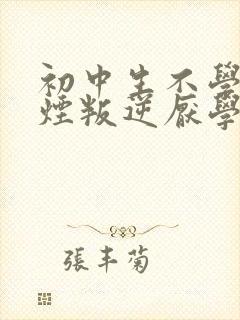 初中生不學
煙叛逆厭學
張丰菊